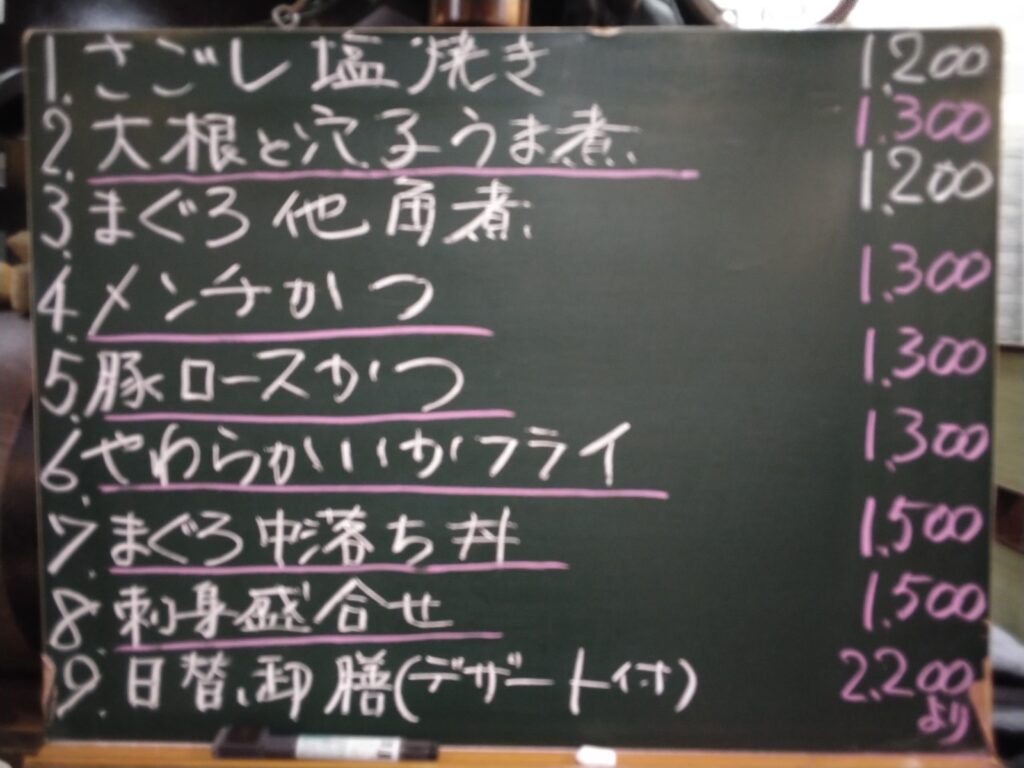 1. さごし塩焼き 1.200
2. 大根と穴子うま煮 1.300
3. まぐろ他角煮 1.200
4. メンチかつ 1.300
5. 豚ロースかつ 1.300
6. やわらかいかフライ 1.300
7. まぐろ中落ち丼 1.500
8. 刺身盛合せ 1.500
9. 日替、御膳(デザート付) 2.200
より